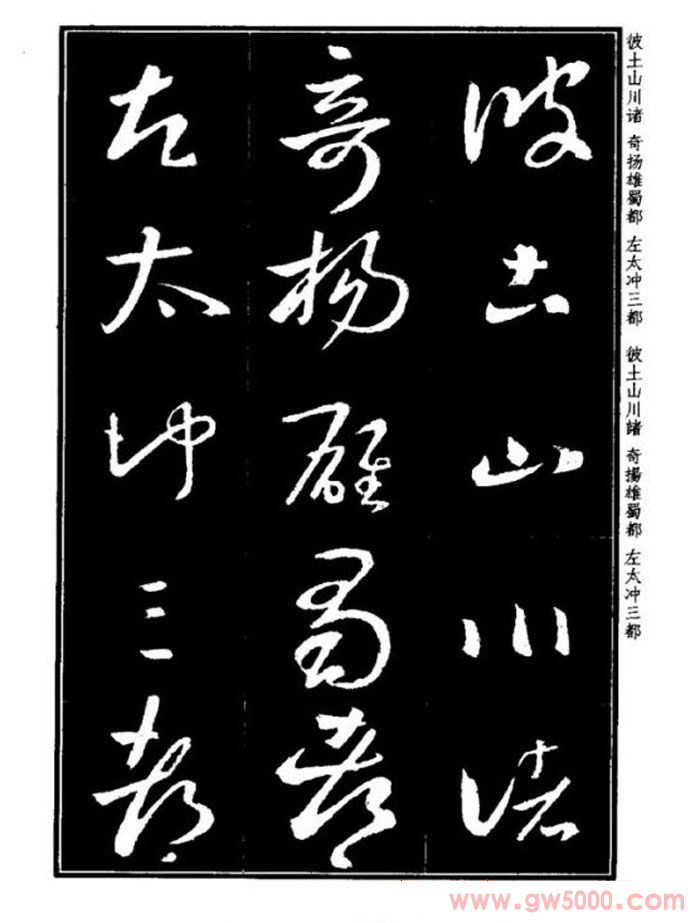 彼土山川诸 奇扬雄蜀都 左太冲三都 彼土山川諸 奇揚雄蜀都 左太冲三都
彼土山川諸
奇揚雄蜀都
左太冲三都
www.gw5000.com